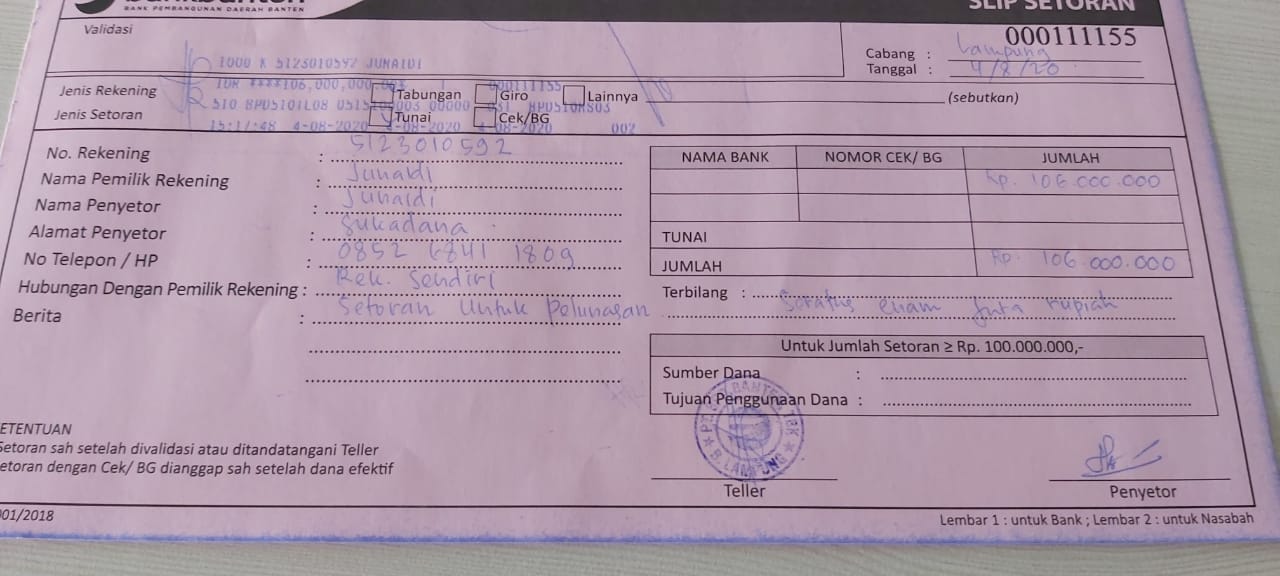 bankbanten
BANK PEMBANGUNAN DAERAH BANTEN
SLIP SETORAN
Validasi
000111155
Cabang : Lampung
Tanggal : 4/8/20
1000 K 5123010592 JUNAIDI
IDR ****106,000,000.00
000111155
Jenis Rekening Tabungan Giro Lainnya (sebutkan)
Jenis Setoran Tunai Cek/BG
15:17:48 4-08-2020 4-08-2020 4-08-2020 002
No. Rekening : 5123010592
Nama Pemilik Rekening : Junaidi
Nama Penyetor : Junaidi
Alamat Penyetor : Sukadana
No Telepon / HP : 0852 6841 1809
Hubungan Dengan Pemilik Rekening : Rek. Sendiri
Berita : Setoran Untuk Pelunasan
NAMA BANK NOMOR CEK/ BG JUMLAH
Rp. 106.000.000
TUNAI
JUMLAH Rp. 106.000.000
Terbilang : Seratus enam Juta rupiah
Untuk Jumlah Setoran ≥ Rp. 100.000.000,-
Sumber Dana :
Tujuan Penggunaan Dana :
ETENTUAN
Setoran sah setelah divalidasi atau ditandatangani Teller
etoran dengan Cek/ BG dianggap sah setelah dana efektif
B. LAMPUNG
Teller
Penyetor
001/2018
Lembar 1 : untuk Bank ; Lembar 2 : untuk Nasabah